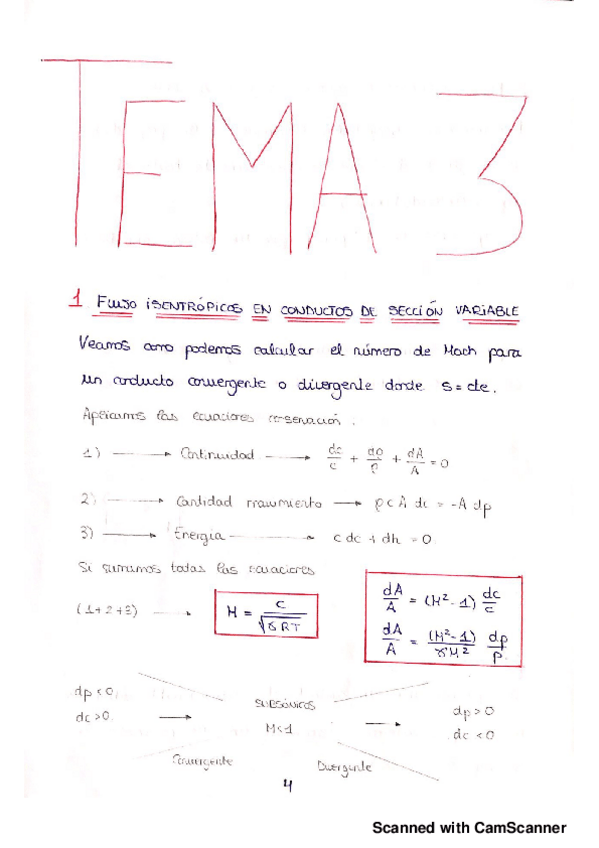 TEMA 3
1 FLUJO ISENTRÓPICOS EN CONDUCTOS DE SECCIÓN VARIABLE
Veamos como podemos calcular el número de Mach para
un conducto convergente o divergente donde s=cte.
Aplicamos las ecuaciones conservación.
1) → Continuidad → dc/c + dρ/ρ + dA/A = 0
2) → Cantidad movimiento → ρ c A dc = -A dp
3) → Energía → c dc + dh = 0
Si sumamos todas las ecuaciones
(1+2+3) → M = c/√(γRT)
dA/A = (M²-1) dc/c
dA/A = (M²-1)/(γM²) dp/p
dp<0
dc>0 → SUBSÓNICOS → dp>0
M<1 dc<0
Convergente Divergente
4
Scanned with CamScanner